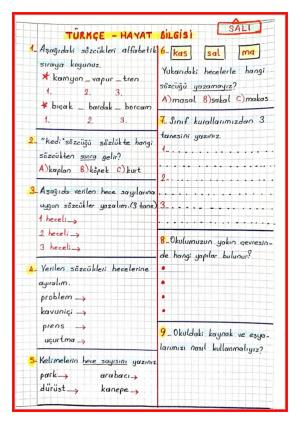 TÜRKÇE - HAYAT BİLGİSİ
SALI
1- Aşağıdaki sözcükleri alfabetik
sıraya koyunuz.
* kamyon _ vapur _ tren
1. 2. 3.
* bıçak _ bardak _ borcam
1. 2. 3.
2- "Kedi" sözcüğü sözlükte hangi
sözcükten sonra gelir?
A) kaplan B) köpek C) kurt
3- Aşağıda verilen hece sayılarına
uygun sözcükler yazalım. (3 tane)
1 heceli →
2 heceli →
3 heceli →
4- Verilen sözcükleri hecelerine
ayıralım.
problem →
kavuniçi →
prens →
uçurtma →
5- Kelimelerin hece sayısını yazınız.
park → arabacı →
dürüst → kanepe →
6- kas sal ma
Yukarıdaki hecelerle hangi
sözcüğü yazamayız?
A) masal B) sakal C) makas
7- Sınıf kurallarımızdan 3
tanesini yazınız.
1.
2.
3.
8- Okulumuzun yakın çevresin-
de hangi yapılar bulunur?
9- Okuldaki kaynak ve eşya-
larımızı nasıl kullanmalıyız?